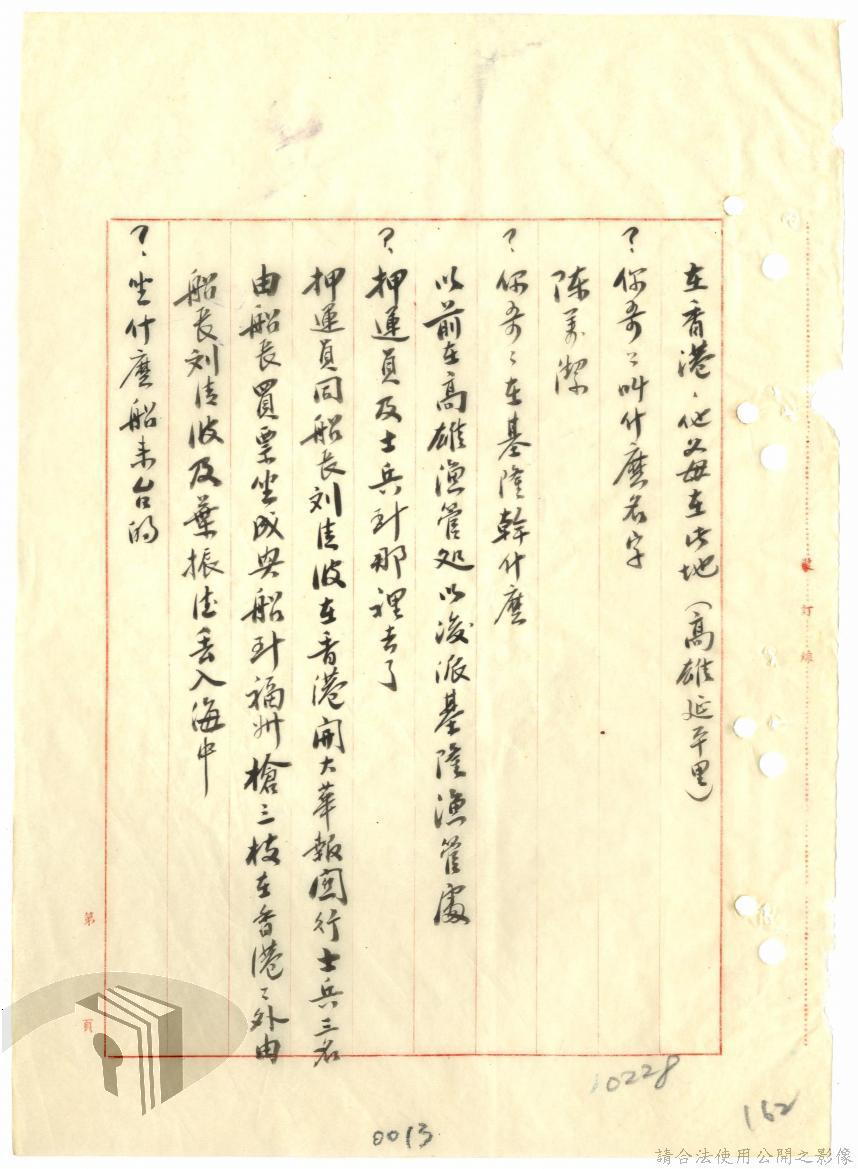 在香港、他父母在此地(高雄延平里)
？你哥〻叫什麼名字
陈美潔
？你哥〻在基隆幹什麼
以前在高雄漁管処以後派基隆漁管處
？押運員及士兵到那裡去了
押運員同船長刘清波在香港開大華報関行士兵三名
由船長買票坐成興船到福州槍三枝在香港〻外由
船長刘清波及葉振法丟入海中
？坐什麼船来台的
裝訂線
第
頁
10228
162
0013
請合法使用公開之影像